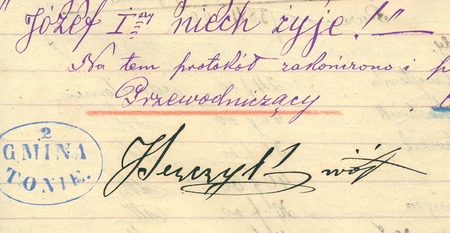 Józef Iszy niech żyje!"—
Na tem protokół zakończono i p
Przewodniczący
2
GMINA
TONIE.
wójt